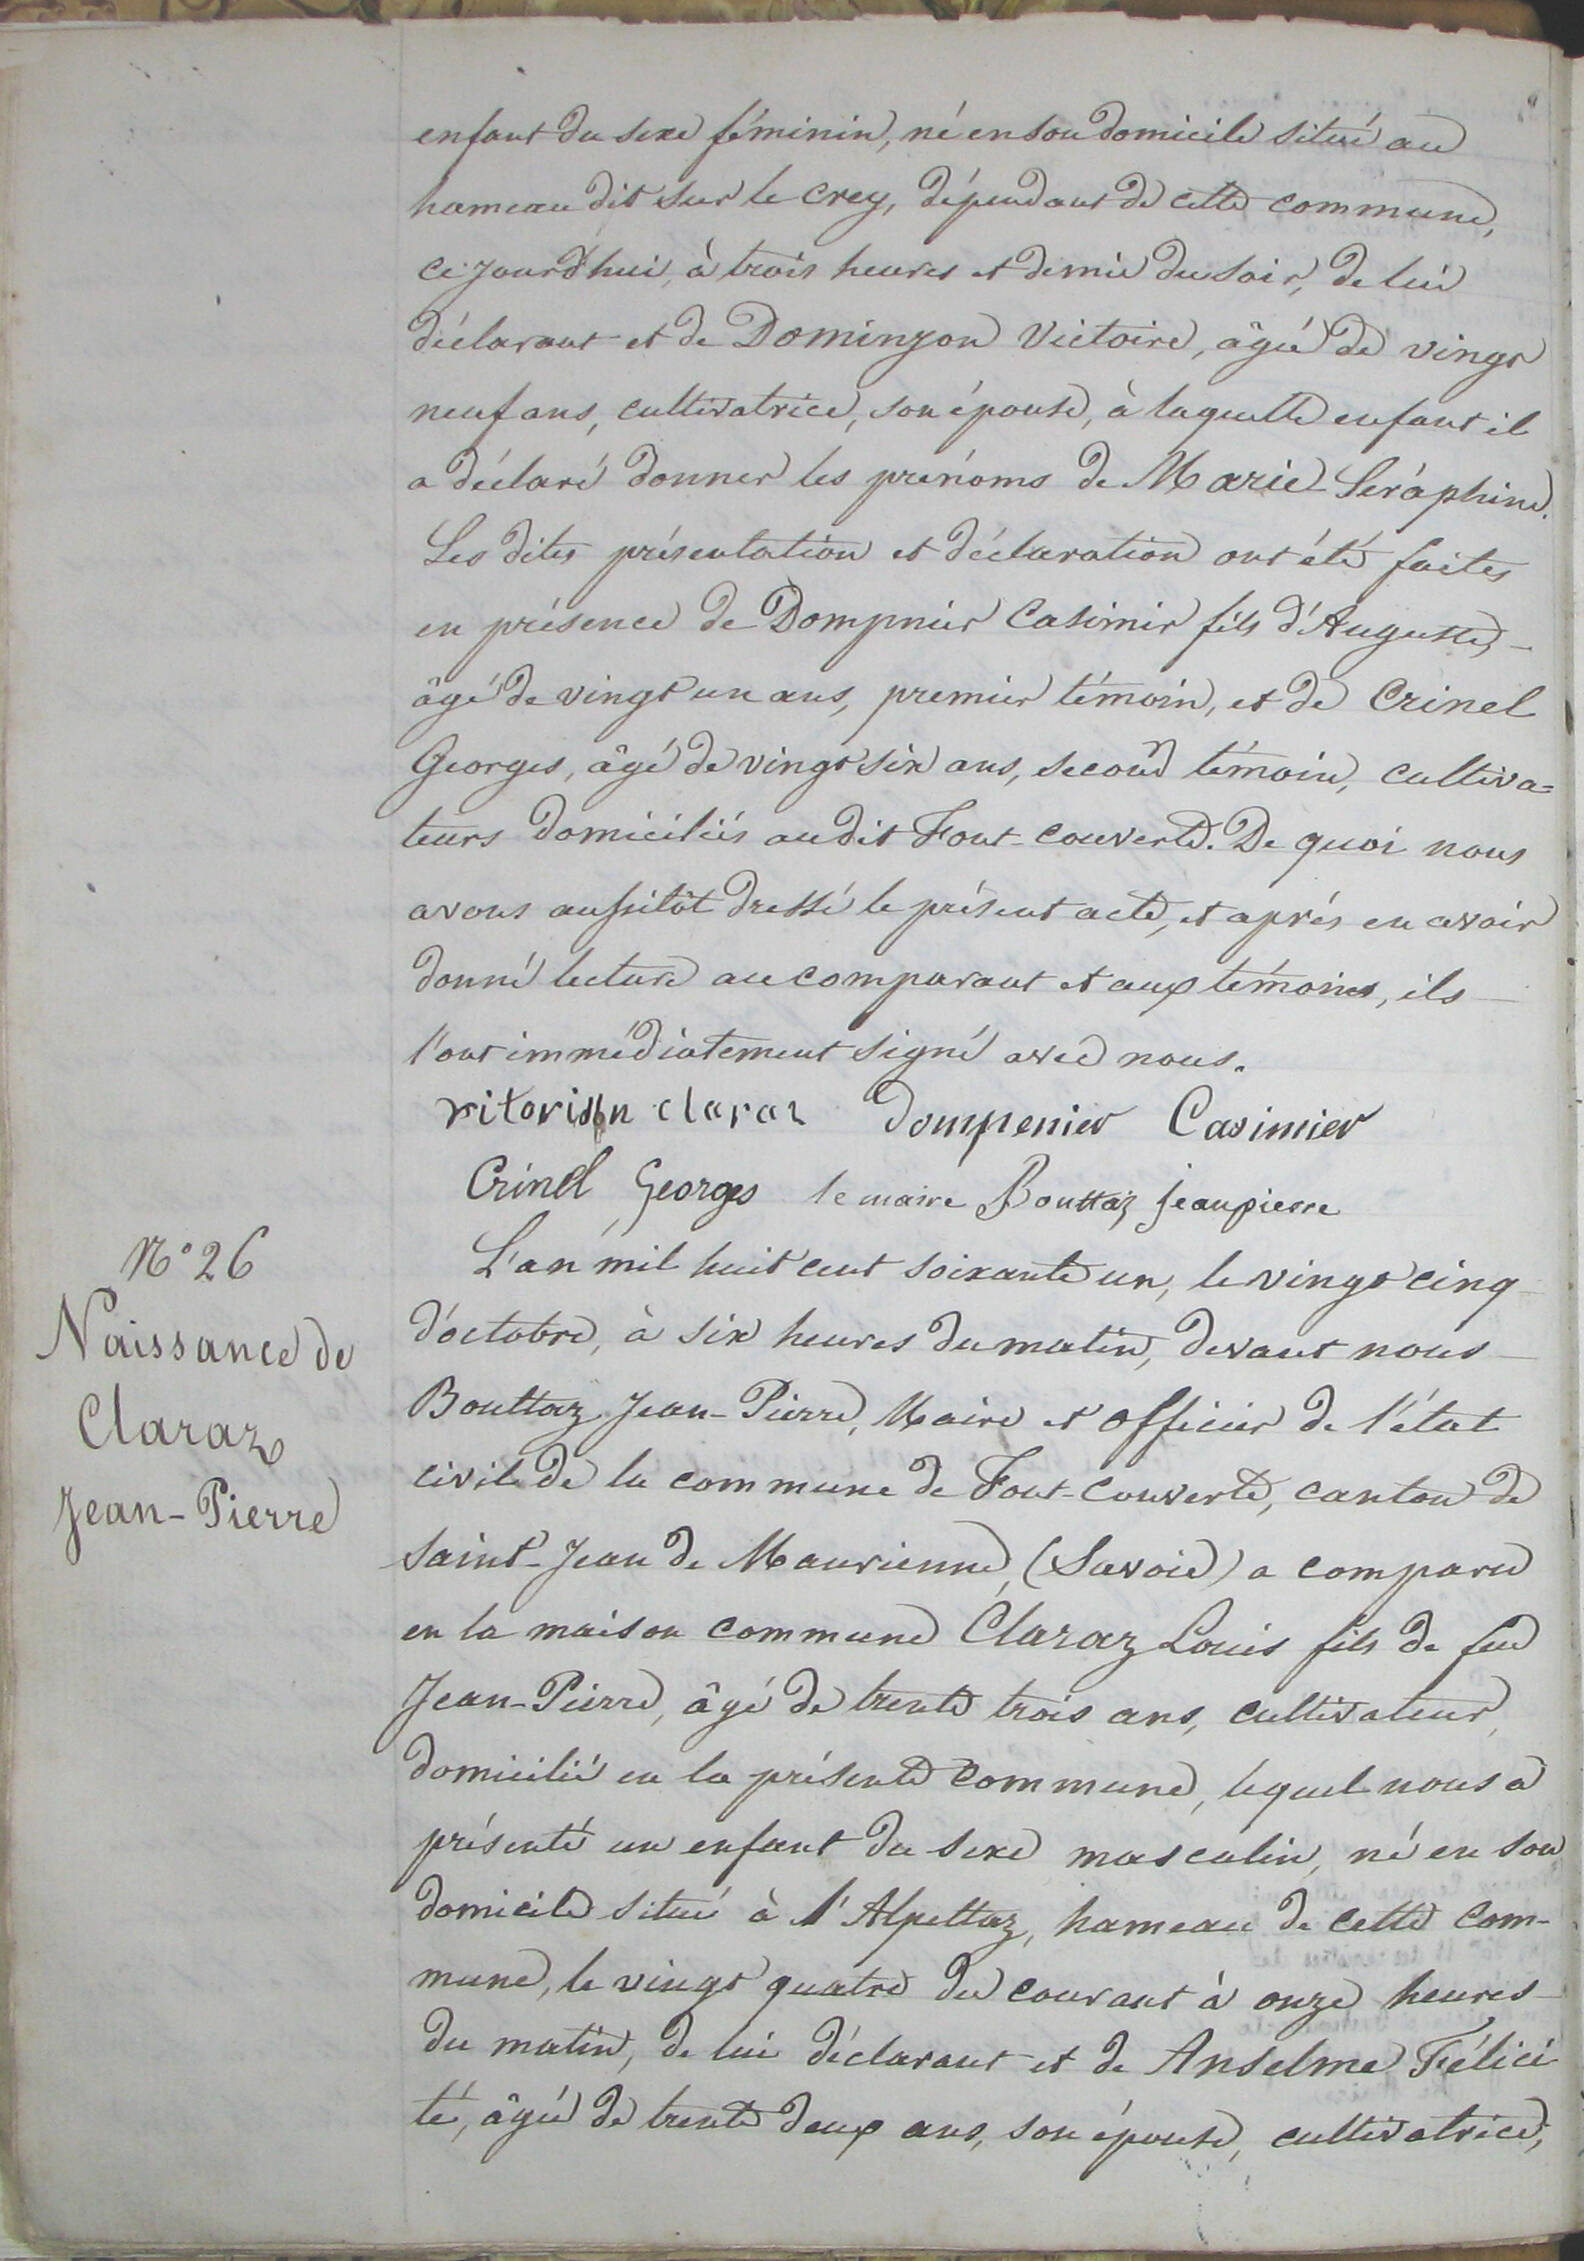 enfant du sexe féminin, né en son domicile situé au
hameau dit sur le crey, dépendant de cette commune,
ce jourd'hui, à trois heures et demie du soir, de lui
déclarant et de Dominjon Victoire, âgée de vingt
neuf ans, cultivatrice, son épouse, à laquelle enfant il
a déclaré donner les prénoms de Marie-Séraphine.
Les dites présentation et déclaration ont été faites
en présence de Dompnier Casimir fils d'Auguste,
âgé de vingt un ans, premier témoin, et de Crinel
Georges, âgé de vingt six ans, second témoin, cultiva=
teurs domiciliés audit Font-couverte. De quoi nous
avons aussitôt dressé le présent acte, et après en avoir
donné lecture au comparant et aux témoins, ils
l'ont immédiatement signé avec nous.
claraz Dompenier Casimier
Crinel Georges le maire Bouttaz jeanpierre
N° 26
Naissance de
Claraz
Jean-Pierre
L'an mil huit cent soixante un, le vingt cinq
d'octobre, à six heures du matin, devant nous
Bouttaz Jean-Pierre, Maire et officier de l'état
civil de la commune de Font-couverte, canton de
Saint-Jean de Maurienne, (Savoie) a comparu
en la maison commune Claraz Louis fils de feu
Jean-Pierre, âgé de trente trois ans, cultivateur,
domicilié en la présente commune, lequel nous a
présenté un enfant du sexe masculin, né en son
domicile situé à l'Alpettaz, hameau de cette com-
mune, le vingt quatre du courant à onze heures
du matin, de lui déclarant et de Anselme Félici
té, âgée de trente deux ans, son épouse, cultivatrice,